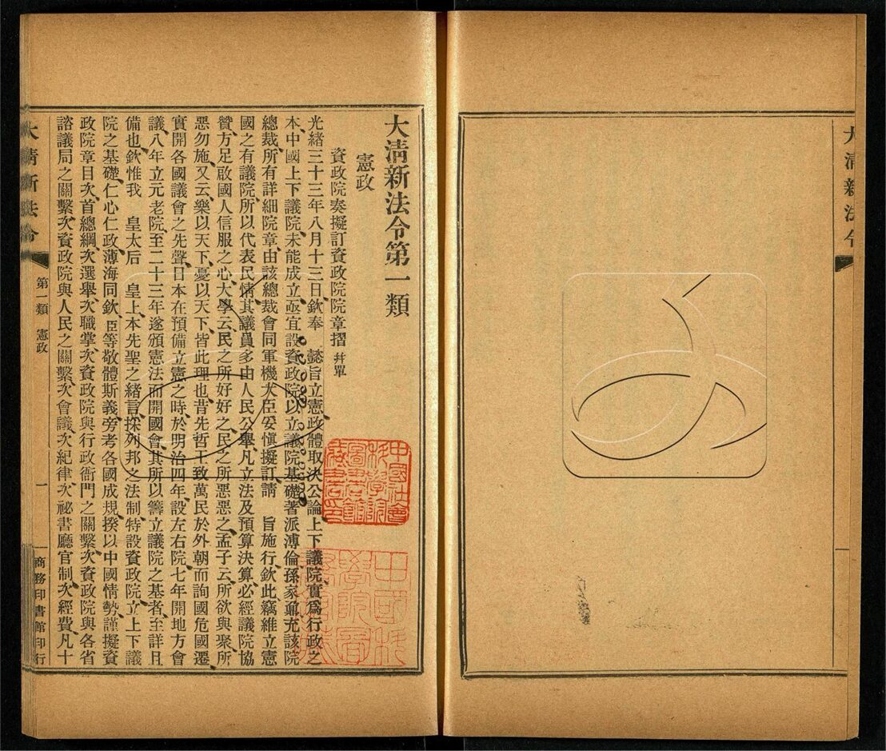 大清新法令
大清新法令第一類
憲政
資政院奏擬訂資政院院章摺 幷單
光緒三十三年八月十三日欽奉 懿旨立憲政體取決公論上下議院實爲行政之
本中國上下議院未能成立亟宜設資政院以立議院基礎著派溥倫孫家鼐充該院
總裁所有詳細院章由該總裁會同軍機大臣妥愼擬訂請 旨施行欽此竊維立憲
國之有議院所以代表民情其議員多由人民公舉凡立法及預算決算必經議院協
贊方足啟國人信服之心大學云民之所好好之民之所惡惡之孟子云所欲與聚所
惡勿施又云樂以天下憂以天下皆此理也昔先哲王致萬民於外朝而詢國危國遷
實開各國議會之先聲日本在預備立憲之時於明治四年設左右院七年開地方會
議八年立元老院至二十三年遂頒憲法而開國會其所以籌立議院之基者至詳且
備也欽惟我 皇太后 皇上本先聖之緒言採列邦之法制特設資政院立上下議
院之基礎仁心仁政薄海同欽臣等敬體斯義旁考各國成規揆以中國情勢謹擬資
政院章目次首總綱次選舉次職掌次資政院與行政衙門之關繫次資政院與各省
諮議局之關繫次資政院與人民之關繫次會議次紀律次祕書廳官制次經費凡十
大清新法令
第一類 憲政
一
商務印書館印行